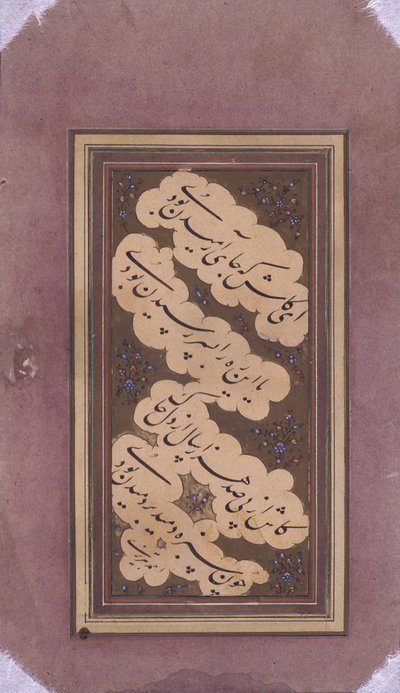 ای کاش که جای آرمیدن بودی
یا این ره را بسر رسیدن بودی
کاش از پی صد هزار سال از دل خاک
چون سبزه امید بر دمیدن بودی